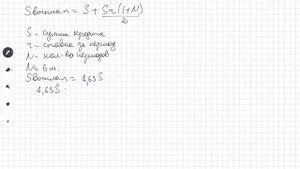 Sвыплат = S + Sr(1+N)/2
S - сумма кредита
r - ставка за период
N - кол-во периодов
N = 6 м.
Sвыплат = 1,63S
1,63S